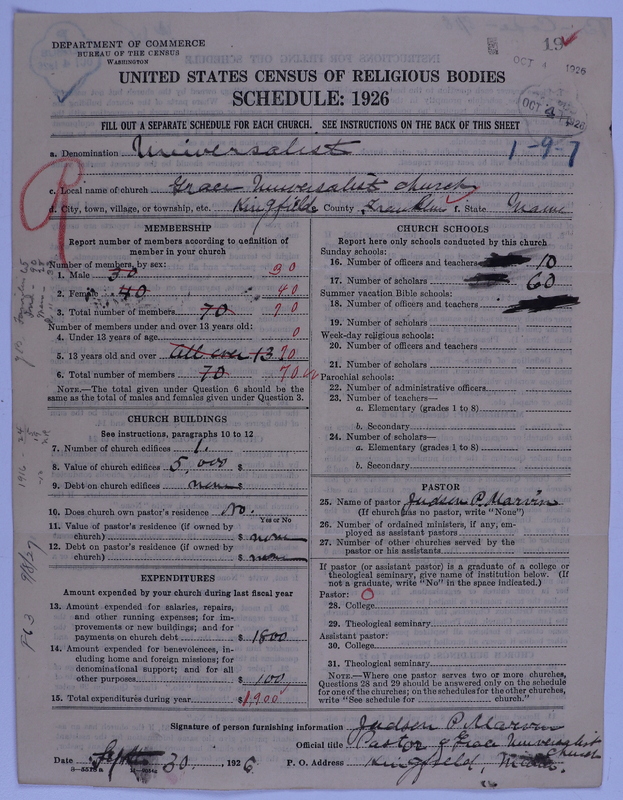 DEPARTMENT OF COMMERCE
BUREAU OF THE CENSUS
WASHINGTON
19
OCT 4 1926
OCT 4 1926
UNITED STATES CENSUS OF RELIGIOUS BODIES
SCHEDULE: 1926
FILL OUT A SEPARATE SCHEDULE FOR EACH CHURCH. SEE INSTRUCTIONS ON THE BACK OF THIS SHEET
a. Denomination Universalist 1-9-7
c. Local name of church Grace Universalist church
d. City, town, village, or township, etc. Kingfield County Franklin f. State Maine
MEMBERSHIP
Report number of members according to definition of
member in your church
Number of members, by sex:
1. Male 30 30
2. Female 40 40
3. Total number of members 70 70
Number of members under and over 13 years old:
4. Under 13 years of age 0
5. 13 years old and over all over 13 70
6. Total number of members 70 70
NOTE.—The total given under Question 6 should be
same as the total of males and females given under Question 3.
CHURCH BUILDINGS
See instructions, paragraphs 10 to 12
7. Number of church edifices 1.
8. Value of church edifices 5,000 $
9. Debt on church edifices none $
10. Does church own pastor's residence No.
Yes or No
11. Value of pastor's residence (if owned by
church) $ none
12. Debt on pastor's residence (if owned by
church) $ none
EXPENDITURES
Amount expended by your church during last fiscal year
13. Amount expended for salaries, repairs,
and other running expenses; for im-
provements or new buildings; and for
payments on church debt $ 1800
14. Amount expended for benevolences, in-
cluding home and foreign missions; for
denominational support; and for all
other purposes $ 100
15. Total expenditures during year $ 1900
CHURCH SCHOOLS
Report here only schools conducted by this church
Sunday schools:
16. Number of officers and teachers 10
17. Number of scholars 60
Summer vacation Bible schools:
18. Number of officers and teachers
19. Number of scholars
Week-day religious schools:
20. Number of officers and teachers
21. Number of scholars
Parochial schools:
22. Number of administrative officers
23. Number of teachers—
a. Elementary (grades 1 to 8)
b. Secondary
24. Number of scholars—
a. Elementary (grades 1 to 8)
b. Secondary
PASTOR
25. Name of pastor Judson P. Marvin
(If church has no pastor, write "None")
26. Number of ordained ministers, if any, em-
ployed as assistant pastors
27. Number of other churches served by the
pastor or his assistants
If pastor (or assistant pastor) is a graduate of a college or
theological seminary, give name of institution below. (If
not a graduate, write "No" in the space indicated.)
Pastor: O
28. College
29. Theological seminary
Assistant pastor:
30. College
31. Theological seminary
NOTE.—Where one pastor serves two or more churches,
Questions 28 and 29 should be answered only on the schedule
for one of the churches; on the schedules for the other churches,
write "See schedule for church."
Signature of person furnishing information Judson P. Marvin
Official title Pastor of Grace Universalist Church
Date Sept 30, 1926 P. O. Address Kingfield, Maine.